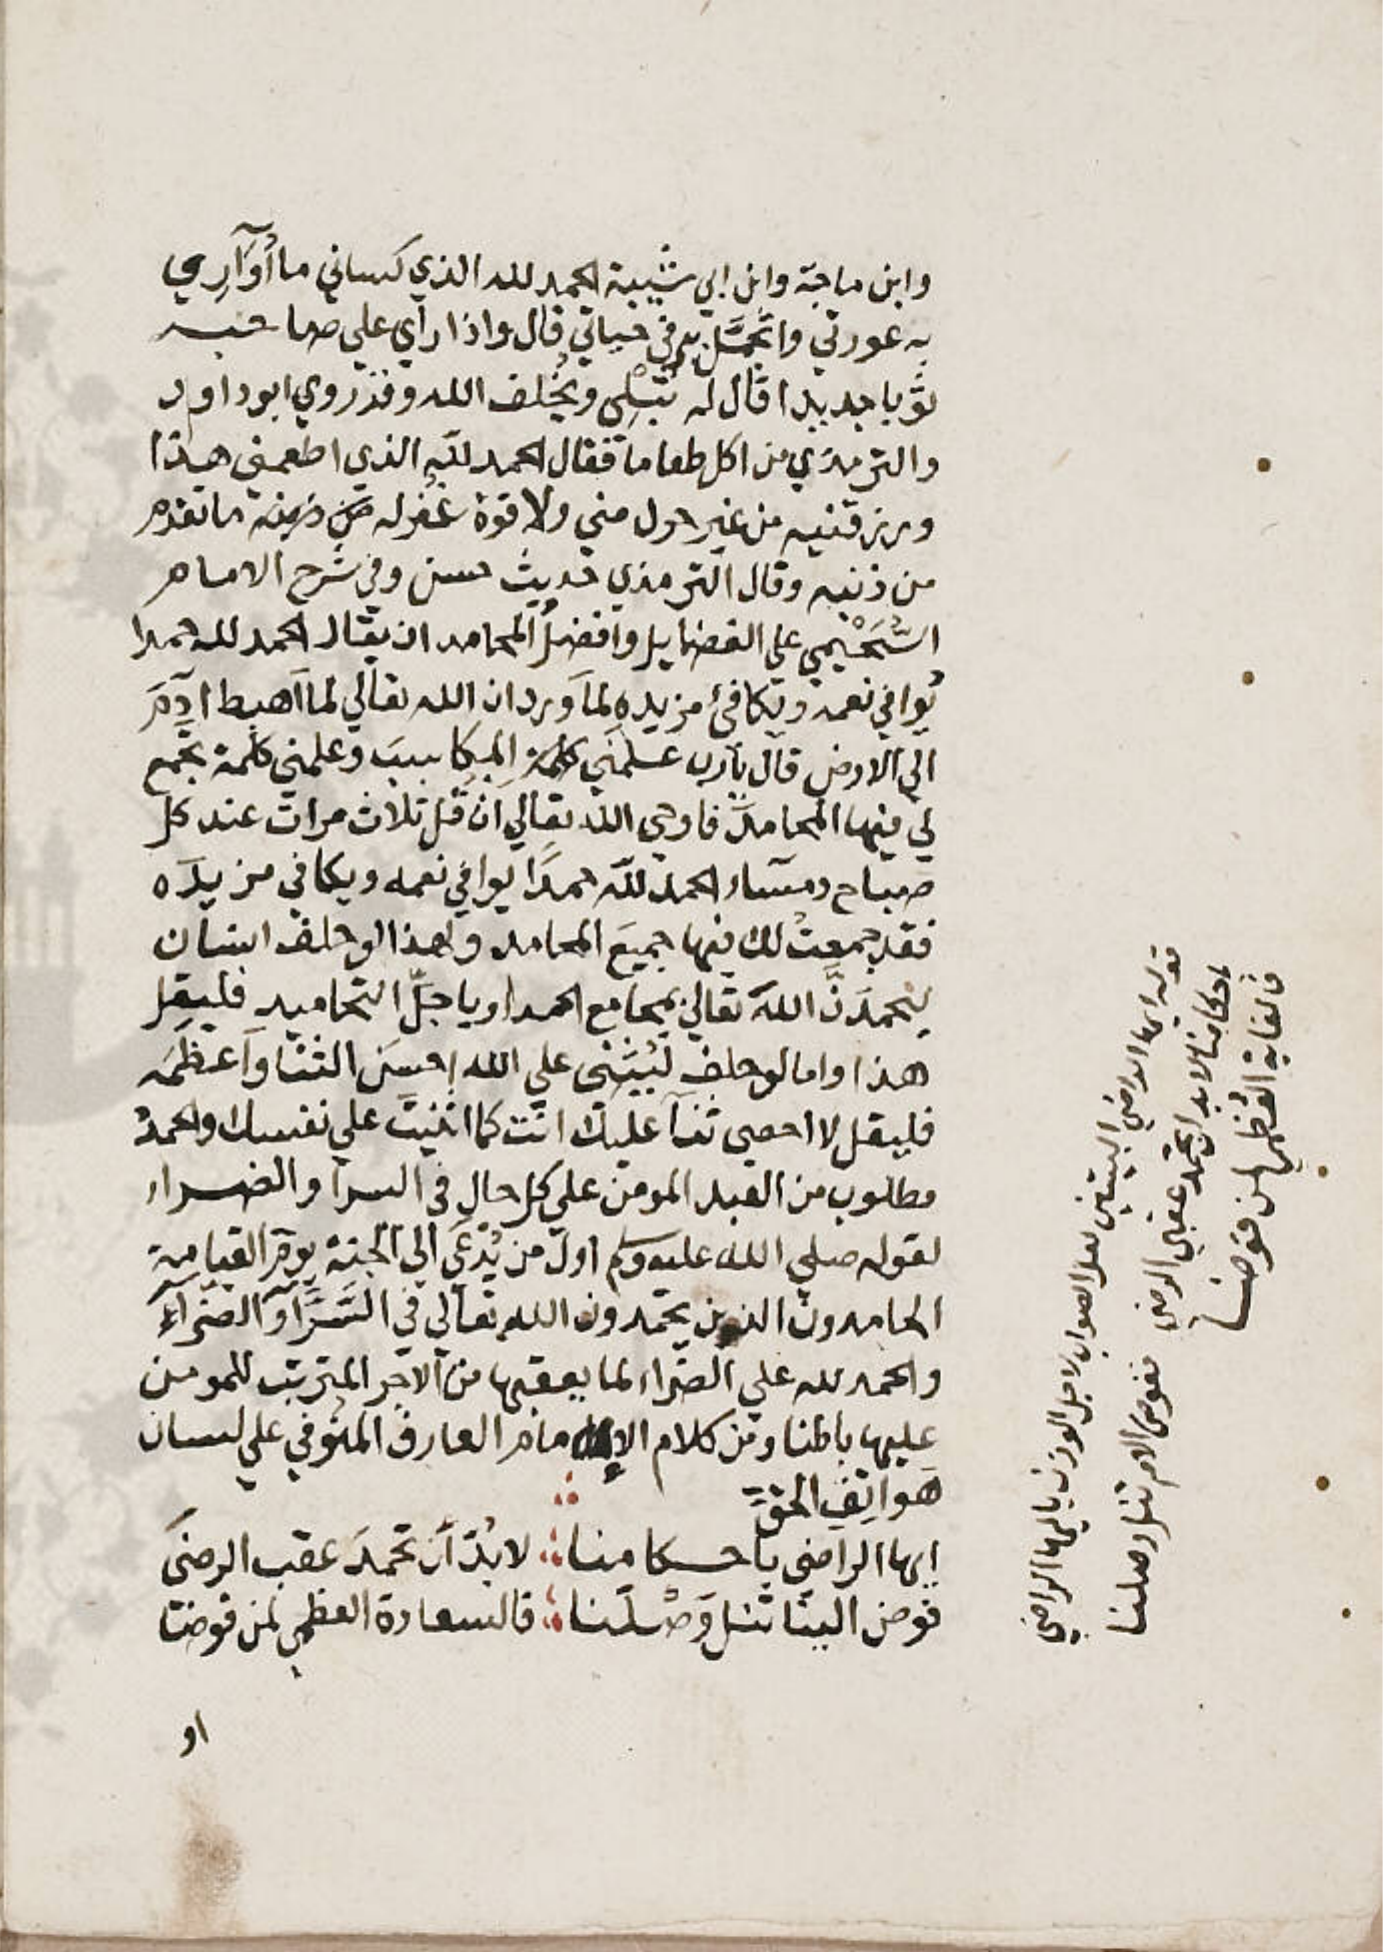 وابن ماجة وابن ابي شيبة الحمد لله الذي كساني ما أُوَارِي
به عورتي واتجمَّل به في حياتي قال واذا رأي علي صاحبه
ثوبا جديدا قال له تُبْلِى ويُخْلف الله وقد روي ابو داود
والترمذي من اكل طعاما فقال الحمد للّهِ الذي اطعمني هذا
ورزقنيه من غير حول مني ولا قوة غفر له ما تقدم
من ذنبه وقال الترمذي حديث حسن وفي شرح الامام
السُّحَيْمي علي الفضايل وافضلُ المحامد ان يقال الحمد لله حمدا
يُوافي نعمه ويكافئ مزيده لما ورد ان الله تعالي لما اهبط ادم
الي الارض قال يارب علمني المكاسب وعلمني كلمة تجمع
لي فيها المحامد فاوحي الله تعالي ان قل ثلاث مرات عند كل
صباح ومساء الحمد للّه حمدًا يوافي نعمه ويكافي مزيده
فقد جمعتُ لك فيها جميعَ المحامد ولهذا لو حلف انسان
ليحمدَنَّ اللهَ تعالي بمجامع الحمد او باجلّ التحاميد فليقل
هذا واما لو حلف ليُثنى علي الله احسنَ الثنا واعظمَه
فليقل لا احصى ثنآ عليك انت كما اثنيتَ علي نفسك والحمدُ
مطلوب من العبد المومن علي كل حال في السرا والضراء
لقوله صلي الله عليه وسلم اول من يُدْعَي الي الجنة يوم القيامة
الحامدون الذين يحمدون الله تعالي في السَّرَّآ والضّرّآءِ
والحمد لله علي الضراء لما يعقبها من الاجر المترتب للمومن
عليها باطنا ومن كلام الامام العارف المتوفي علي لسان
هواتِفِ الحقّ
ايها الراضي باحكامنا لابُدّ ان تحمدَ عقب الرضي
فوض الينا تنل وَصْلَنا فالسعادة العظمي لمن فوضنا
او
قوله ايها الراضي البيتين لعل الصواب لاجل الوزن يا ايها الراضي
باحكامنا لا بد ان تحمد عقبي الرضي ففوض الامر تنل وصلنا
فالغاية العظمي لمن فوضنا